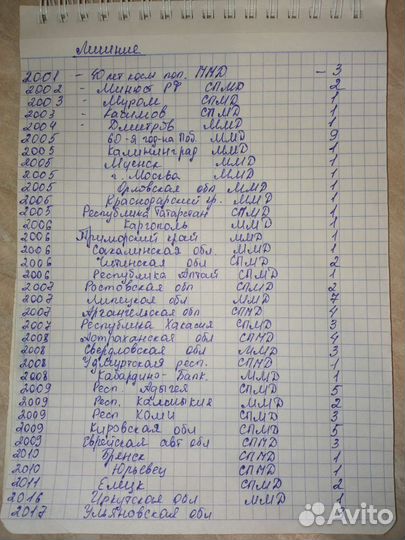 Лишние
2001 - 40 лет косм. пол. ММД - 3
2002 - Минюст РФ СПМД 2
2003 - Муром СПМД 1
2003 - Касимов СПМД 1
2004 - Дмитров ММД 1
2005 60-я год-на Поб. ММД 9
2005 Калининград ММД 1
2005 Мценск ММД 1
2005 г. Москва ММД 1
2005 Орловская обл ММД 1
2005 Краснодарский кр. ММД 1
2005 Республика Татарстан СПМД 1
2006 Каргополь ММД 1
2006 Приморский край ММД 1
2006 Сахалинская обл. ММД 1
2006 Читинская обл СПМД 2
2006 Республика Алтай СПМД 1
2007 Ростовская обл СПМД 2
2007 Липецкая обл ММД 7
2007 Архангельская обл СПМД 4
2007 Республика Хакасия СПМД 3
2008 Астраханская обл СПМД 4
2008 Свердловская обл ММД 3
2008 Удмуртская респ. СПМД 1
2008 Кабардино-Балк. ММД 1
2009 Респ Адыгея СПМД 5
2009 Респ. Калмыкия ММД 2
2009 Респ Коми СПМД 3
2009 Кировская обл СПМД 5
2009 Еврейская авт обл СПМД 3
2010 Брянск СПМД 1
2010 Юрьевец СПМД 1
2011 Елец СПМД 2
2016 Иркутская обл ММД 1
2017 Ульяновская обл
Avito